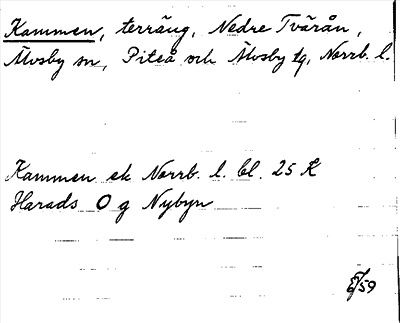 Kammen, terräng, Nedre Tvärån,
Älvsby sn, Piteå och Älvsby tg, Norrb. l.
Kammen ek Norrb. l. bl. 25 K
Harads O g Nybyn
59